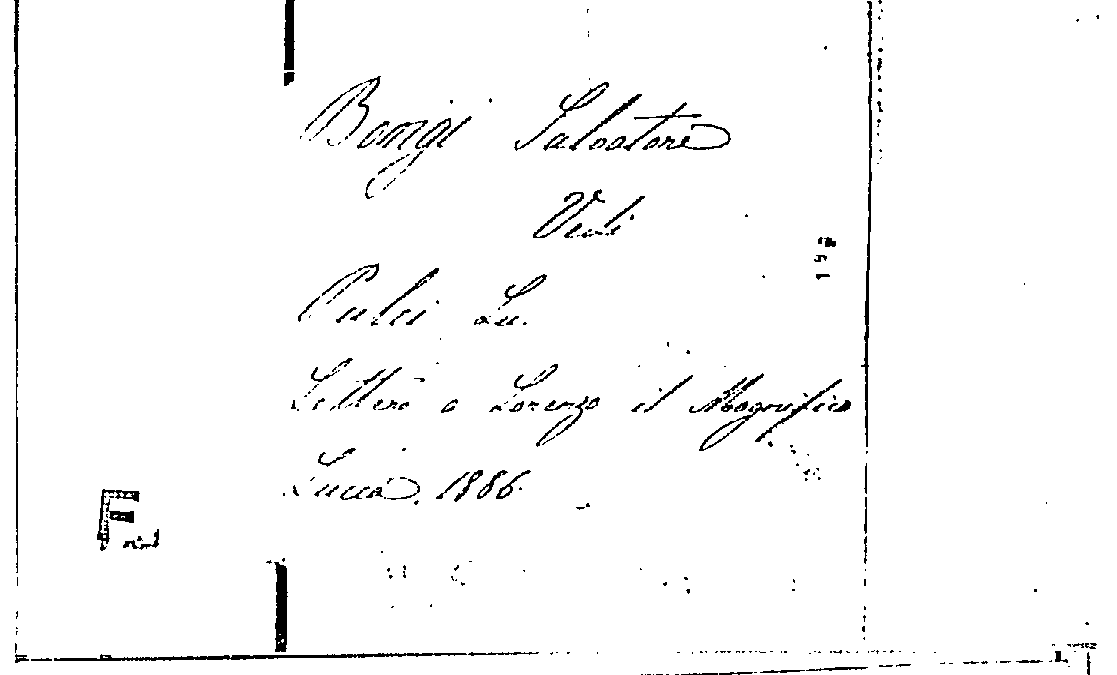 Bongi Salvatore
Vedi
Pulci Lu.
Lettere a Lorenzo il Magnifico
Lucca, 1886.